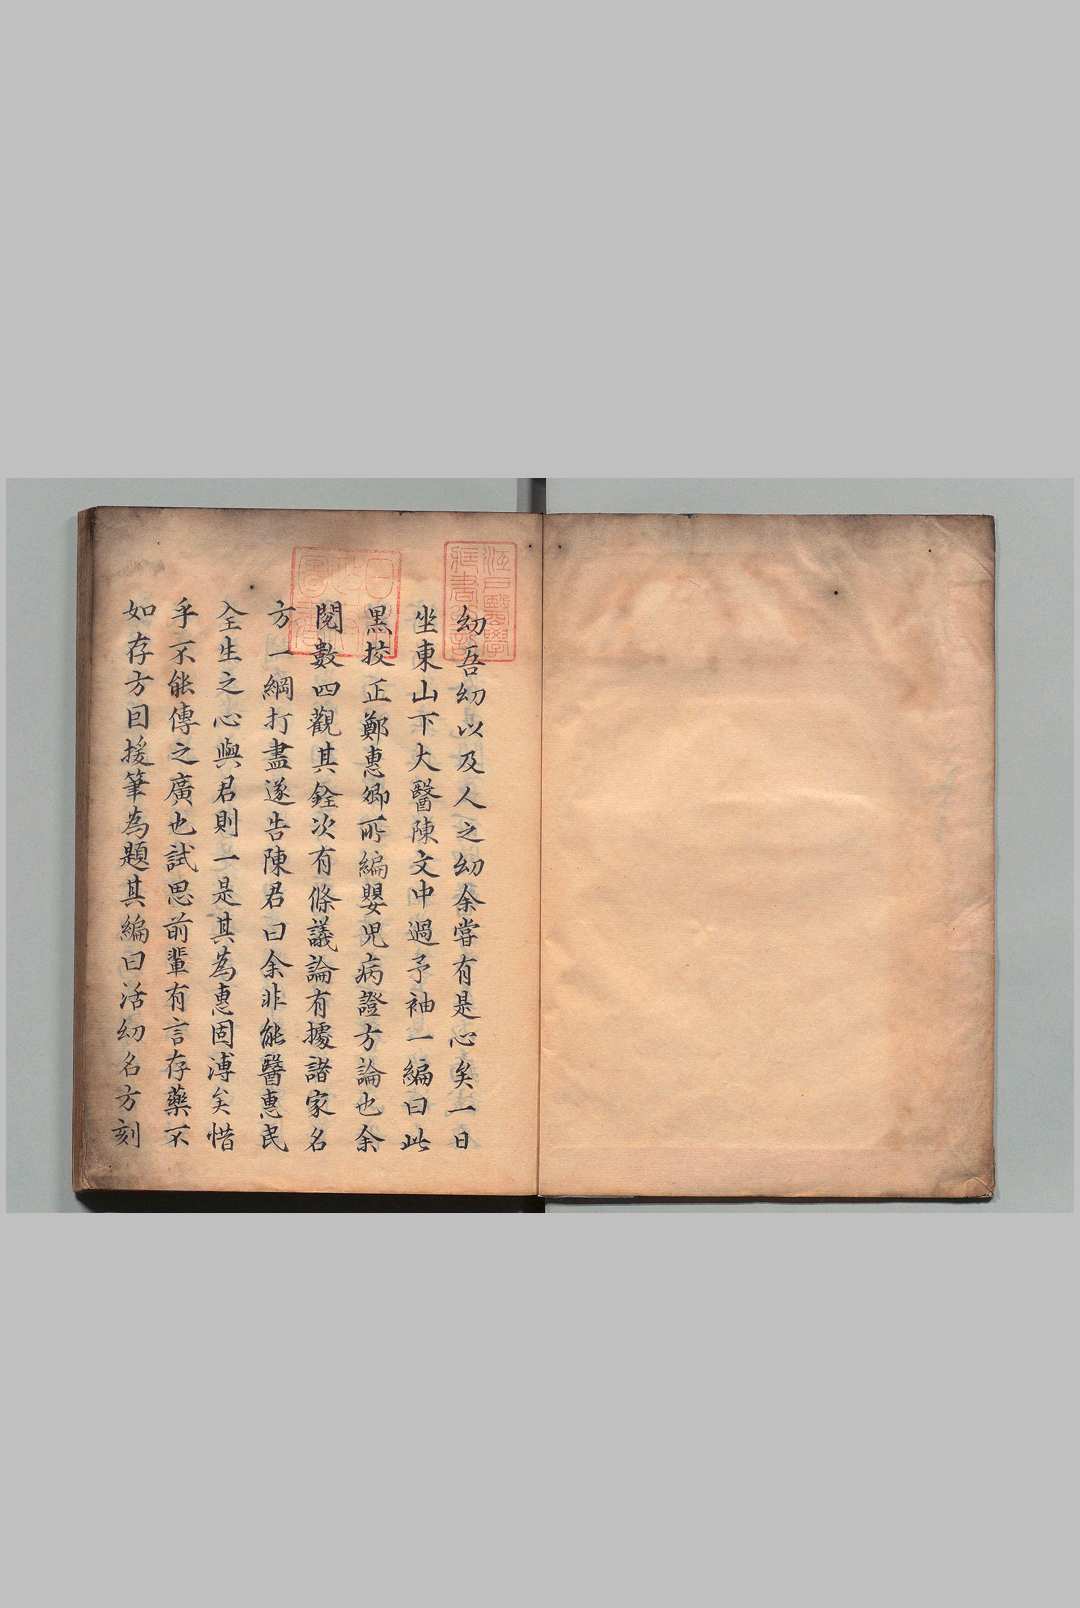 幼吾幼以及人之幼余嘗有是心矣一日
坐東山下大醫陳文中過予袖一編曰此
黑挍正鄭惠卿所編嬰児病證方論也余
閱數四觀其銓次有條議論有據諸家名
方一綱打盡遂告陳君曰余非能醫惠民
全生之心與君則一是其為惠固溥矣惜
乎不能傳之廣也試思前輩有言存藥不
如存方因援筆為題其編曰活幼名方刻
江戸醫學
藏書之記